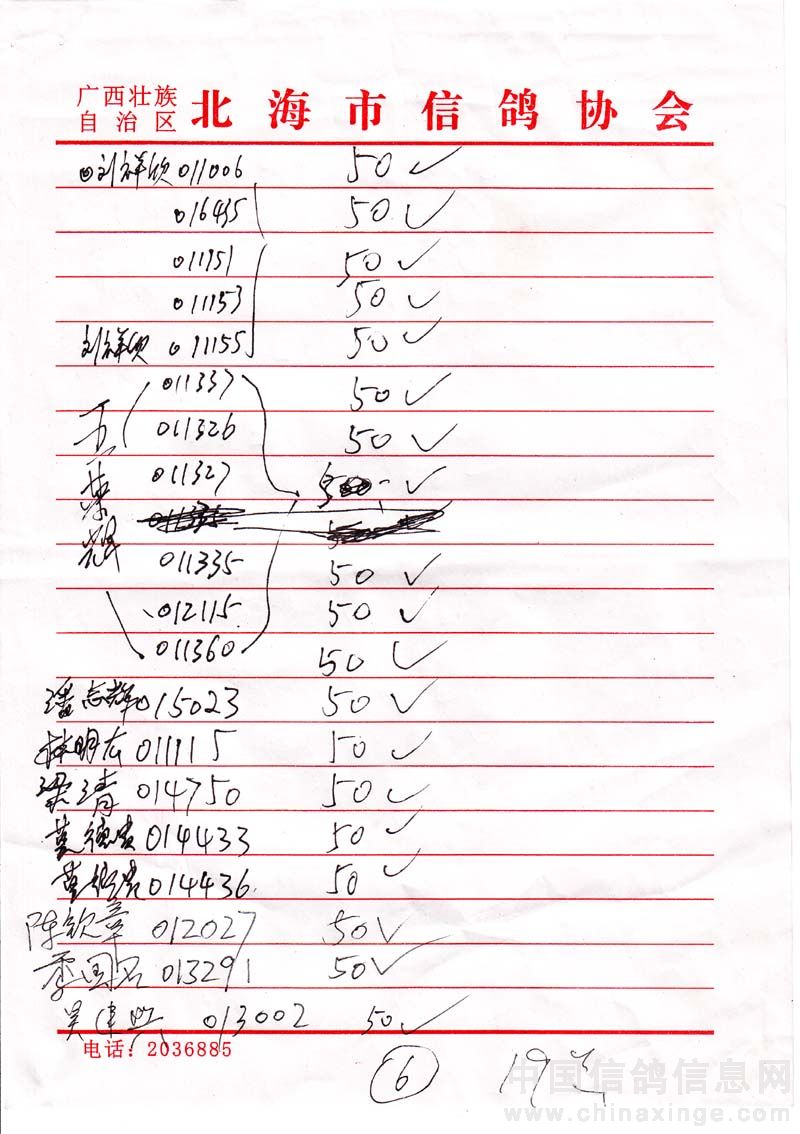 广西壮族
自治区
北海市信鸽协会
刘祥欣 011006 50 ✓
016435 50 ✓
011151 50 ✓
011153 50 ✓
刘祥欣 011155 50 ✓
011337 50 ✓
011326 50 ✓
011327 50 ✓
011335 50 ✓
012115 50 ✓
011360 50 ✓
潘志辉 015023 50 ✓
林明广 011115 50 ✓
梁清 014750 50 ✓
莫德贵 014433 50 ✓
014436 50 ✓
陈钦章 012027 50 ✓
013291 50 ✓
吴建兴 013002 50 ✓
电话：2036885
6 19
中国信鸽信息网
www.chinaxinge.com